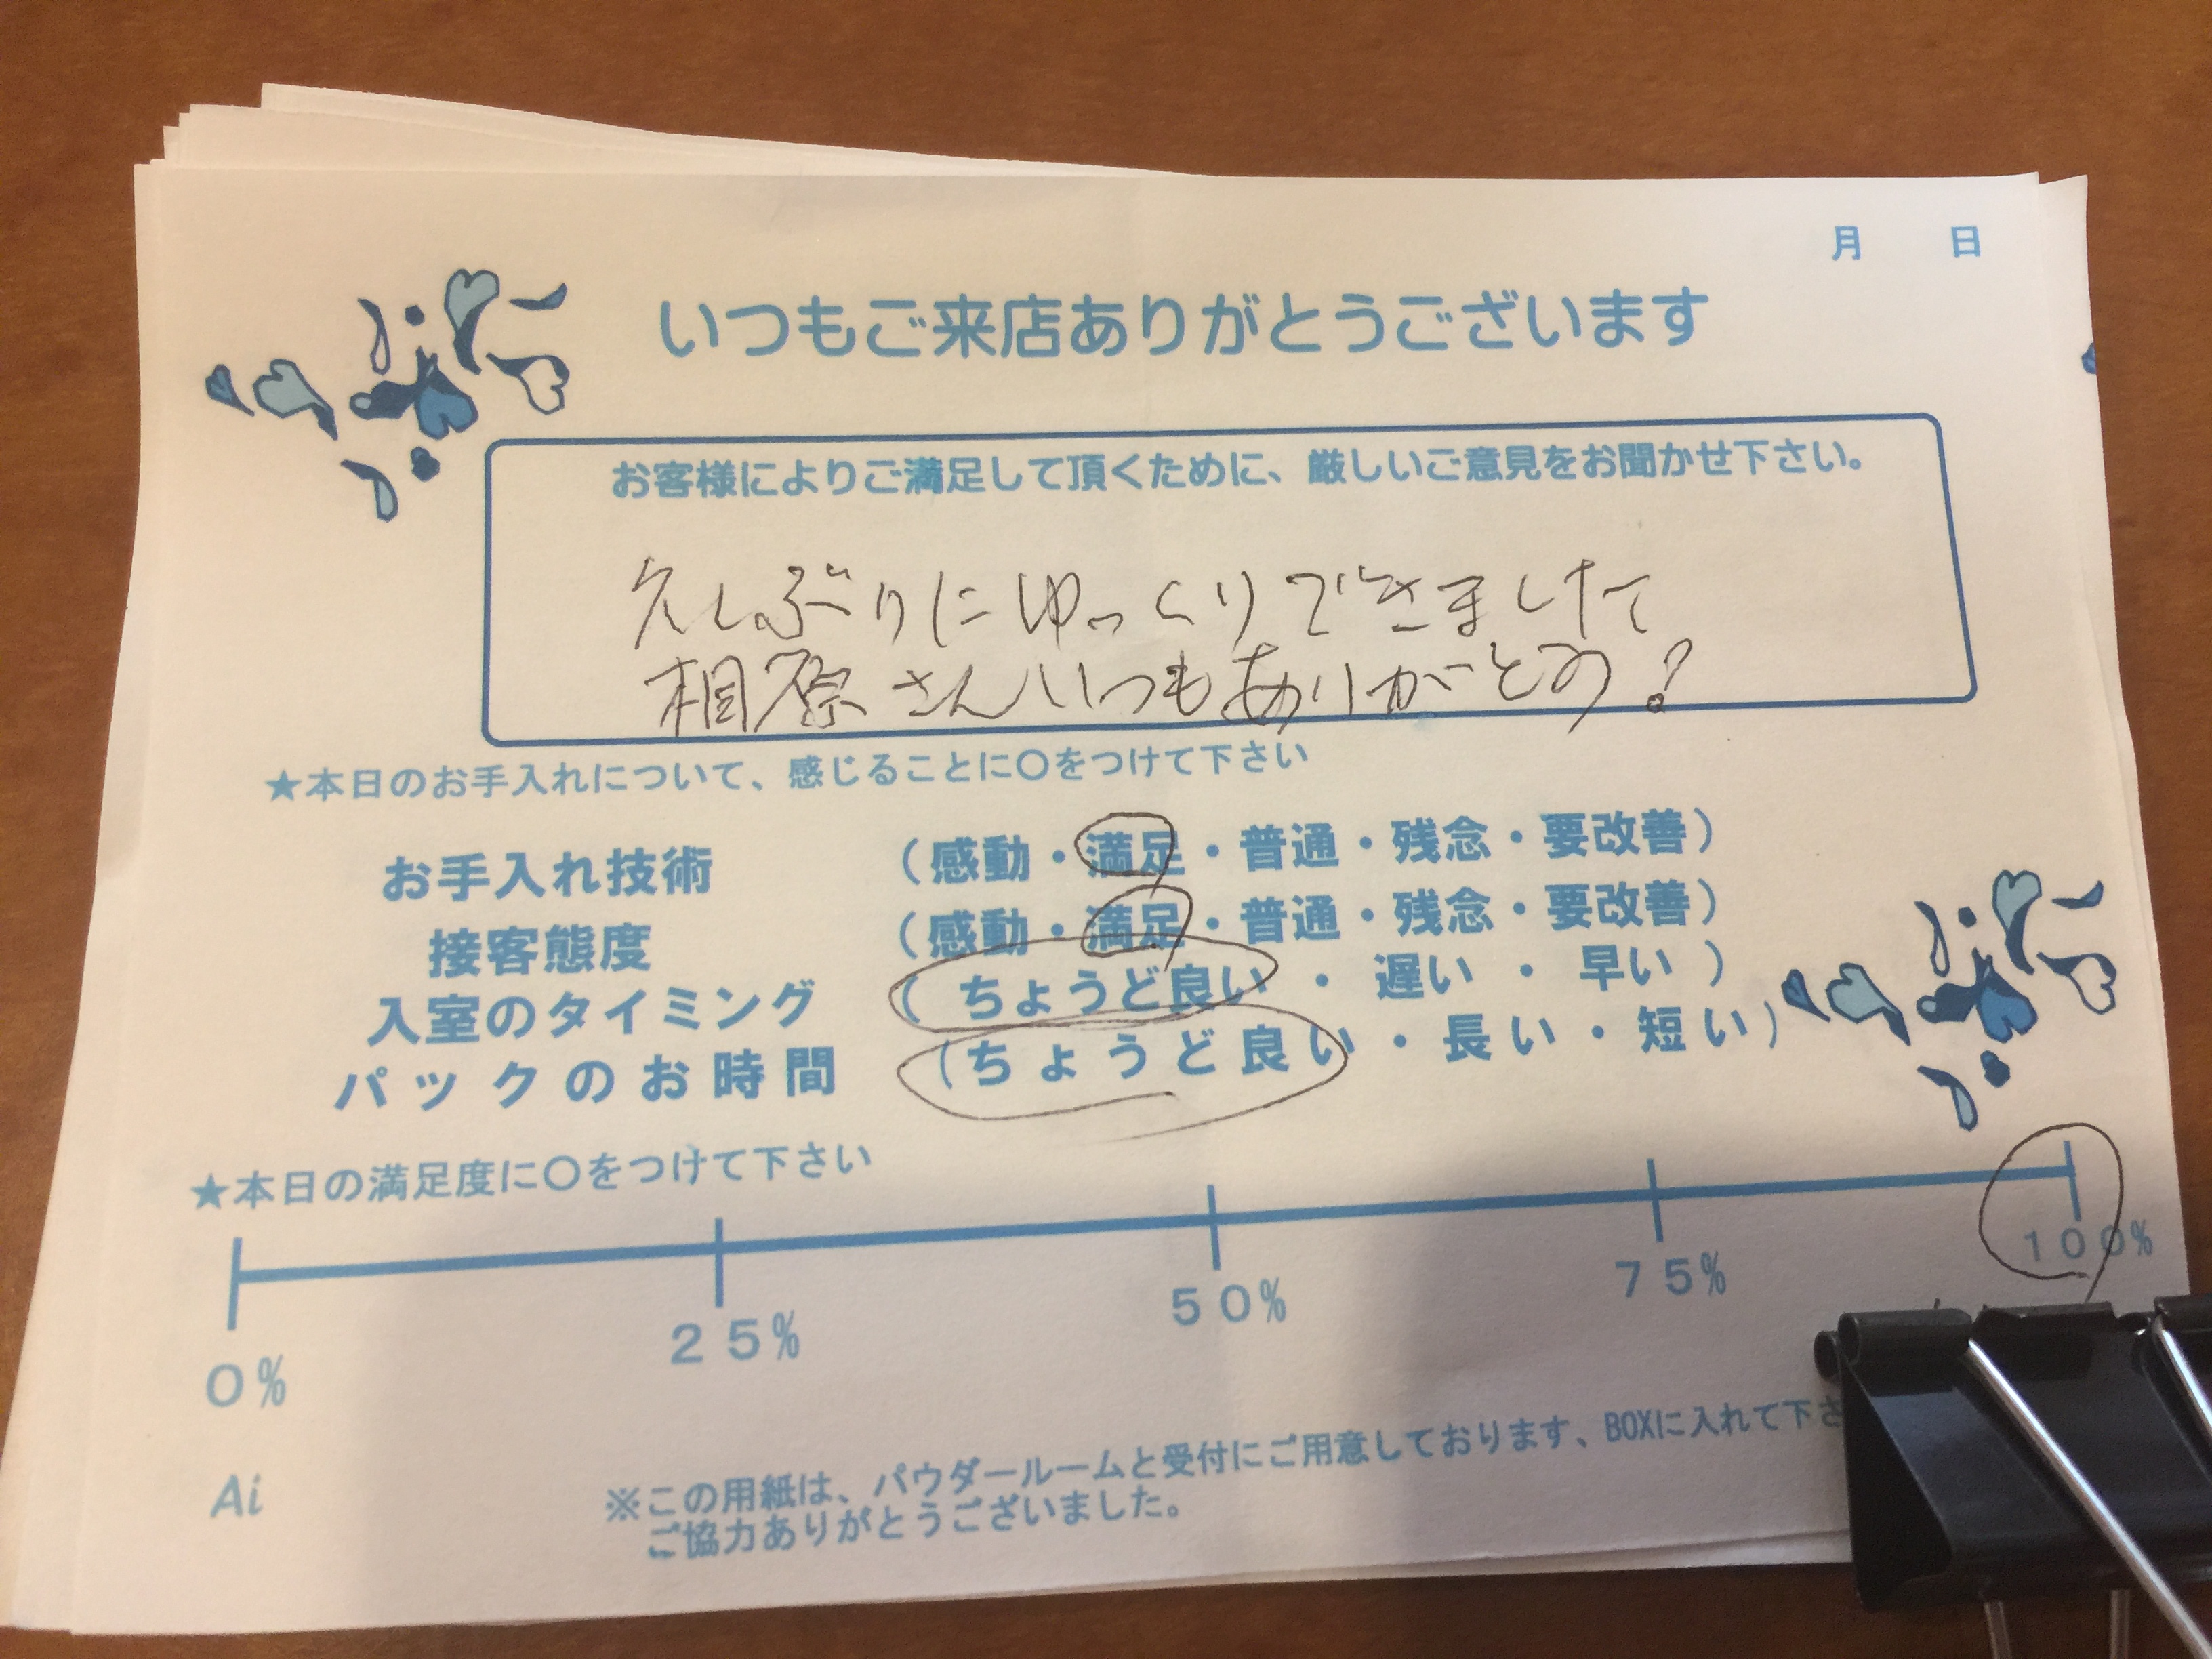 月 日
いつもご来店ありがとうございます
お客様によりご満足して頂くために、厳しいご意見をお聞かせ下さい。
久しぶりにゆっくりできました
相原さんいつもありがとう!
★本日のお手入れについて、感じることに〇をつけて下さい
お手入れ技術 (感動・満足・普通・残念・要改善)
接客態度 (感動・満足・普通・残念・要改善)
入室のタイミング ( ちょうど良い ・ 遅い ・ 早い )
パックのお時間 (ちょうど良い・長い・短い)
★本日の満足度に〇をつけて下さい
0% 25% 50% 75% 100%
Ai
※この用紙は、パウダールームと受付にご用意しております、BOXに入れて下さ
ご協力ありがとうございました。